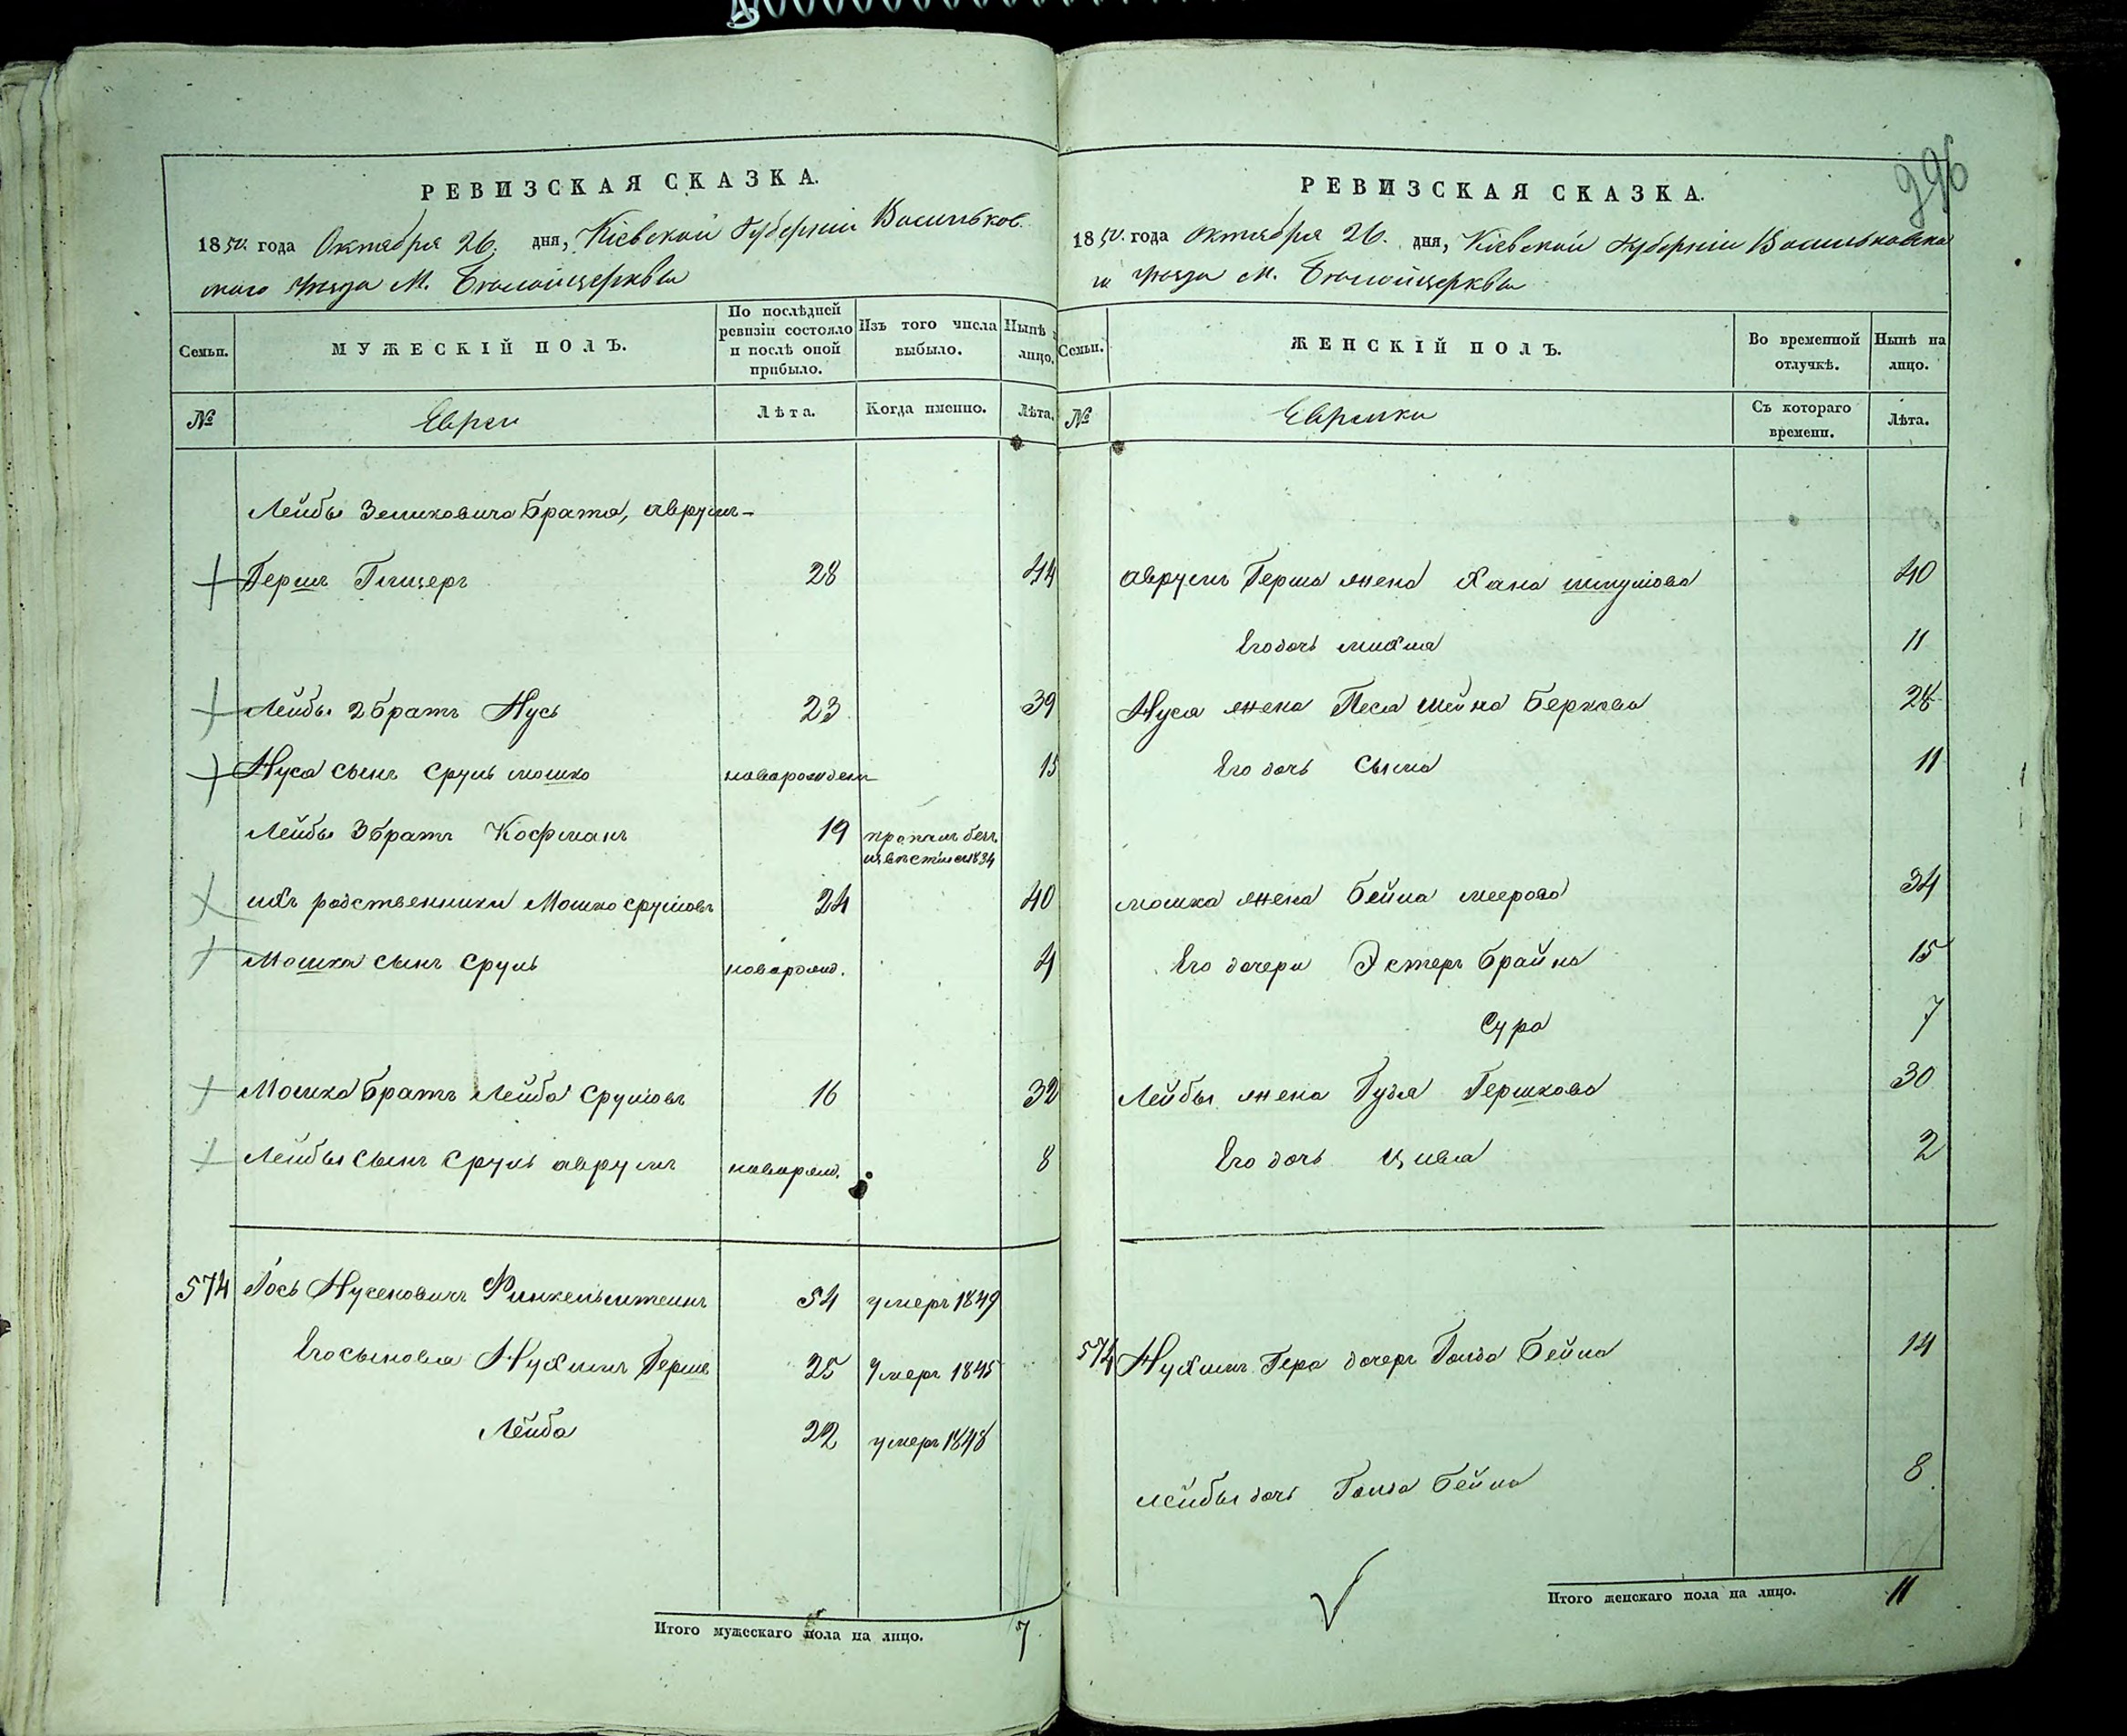 РЕВИЗСКАЯ СКАЗКА.
1850. года Октября 26. дня, Кіевской Губерніи Васильков
ского уезда М. Белойцерквы
Семьи.
МУЖЕСКІЙ ПОЛЪ.
По послѣдней ревизіи состояло и послѣ оной прибыло.
Изъ того числа выбыло.
Нынѣ лицо.
№
Евреи
Лѣта.
Когда именно.
Лѣта.
Лейбы Зельковича брата, аврумъ-
Гершъ 28 44
Лейбы 2 братъ Нусь 23 39
Нуса сынъ Сруль мошко новорожден 15
Лейбы 3 братъ Кофманъ 19 пропалъ безъ
извѣстія 1834
ихъ родственники Мошко Срулiовъ 24 40
Мошка сынъ Сруль новорожд. 4
Мошка братъ Лейба Срулiовъ 16 32
Лейбы сынъ Сруль аврумъ новорожд. 8
574 Іось Нусеновичъ Финкельштеинъ 54 умеръ 1849
Его сыновья Нухимъ Герше 25 Умеръ 1845
Лейба 22 умеръ 1848
Итого мужескаго пола на лицо. 7
396
РЕВИЗСКАЯ СКАЗКА.
1850. года Октября 26. дня, Кіевской Губерніи Васильковска
го уезда М. Белойцерквы
Семьи.
ЖЕНСКІЙ ПОЛЪ.
Во временной отлучкѣ.
Нынѣ на лицо.
№
Еврейки
Съ котораго времени.
Лѣта.
аврумъ Герша жена Хана 40
Его дочь 11
Нуса жена Песя Шейна Беркова 28
Его дочь Сыма 11
мошка жена Бейла меерова 34
Его дочери Эстеръ Брайна 15
Сура 7
Лейбы жена Гудя Гершкова 30
Его дочь Цивья 2
574 Нухимъ Гера дочерь Голда Бейла 14
лейбы дочь Голда Бейла 8
Итого женскаго пола на лицо. 11